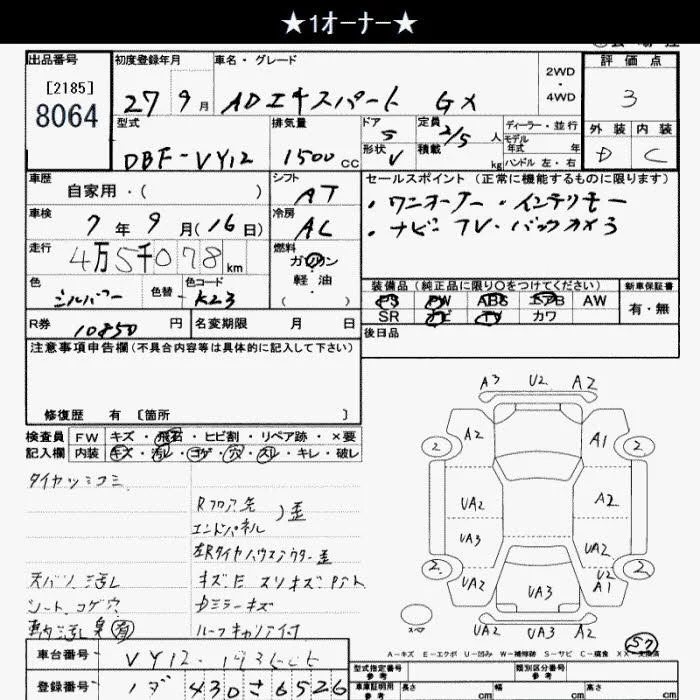 ★1オーナー★
出品番号
[2185]
8064
初度登録年月
27 9月
車名・グレード
ADエキスパート GX
2WD
・
4WD
評価点
3
外装 内装
D C
型式
DBF-VY12
排気量
1500cc
ドア
5
形状
V
定員
2/5人
積載
kg
ディーラー・並行
モデル
年式 年
ハンドル 左・右
車歴
自家用・( )
シフト
AT
車検
7年9月(16日)
冷房
AC
走行
4万5千078km
燃料
ガソリン
・
軽油
( )
色
シルバー
色替
色コード
K23
R券
10850円
名変期限 月 日
セールスポイント(正常に機能するものに限ります)
・ワンオーナー・インテリキー
・ナビ・TV・バックカメラ
装備品(純正品に限り○をつけてください)
PS PW ABS エアB AW
SR ナビ TV カワ
新車保証書
有・無
後日品
注意事項申告欄(不具合内容等は具体的に記入して下さい)
修復歴 有 [箇所 ]
検査員
記入欄
FW キズ・飛石・ヒビ割・リペア跡・×要
内装 キズ・汚レ・コゲ・穴・スレ・キレ・破レ
タイヤツミコミ
Rフロア先
エンドパネル
)歪
左Rタイヤハウスアウター歪
天バリ汚レ
シート コゲ穴
車内汚レ 臭 有
キズE スリキズ
ドミラーキズ
ルーフキャリア付
A3 U2 A2
2 A2 A1 2
UA2 A2
UA3 UA2
2 UA2 UA3 U2 A1 2
UA2 UA3 A2
スペア
57
A-キズ E-エクボ U-凹み W-補修跡 S-サビ C-腐食 XX-交換済
車台番号
VY12-
登録番号
430 さ 6526
型式指定番号
参考
類別区分番号
参考
車庫証明用
参考
長さ cm 幅 cm 高さ cm